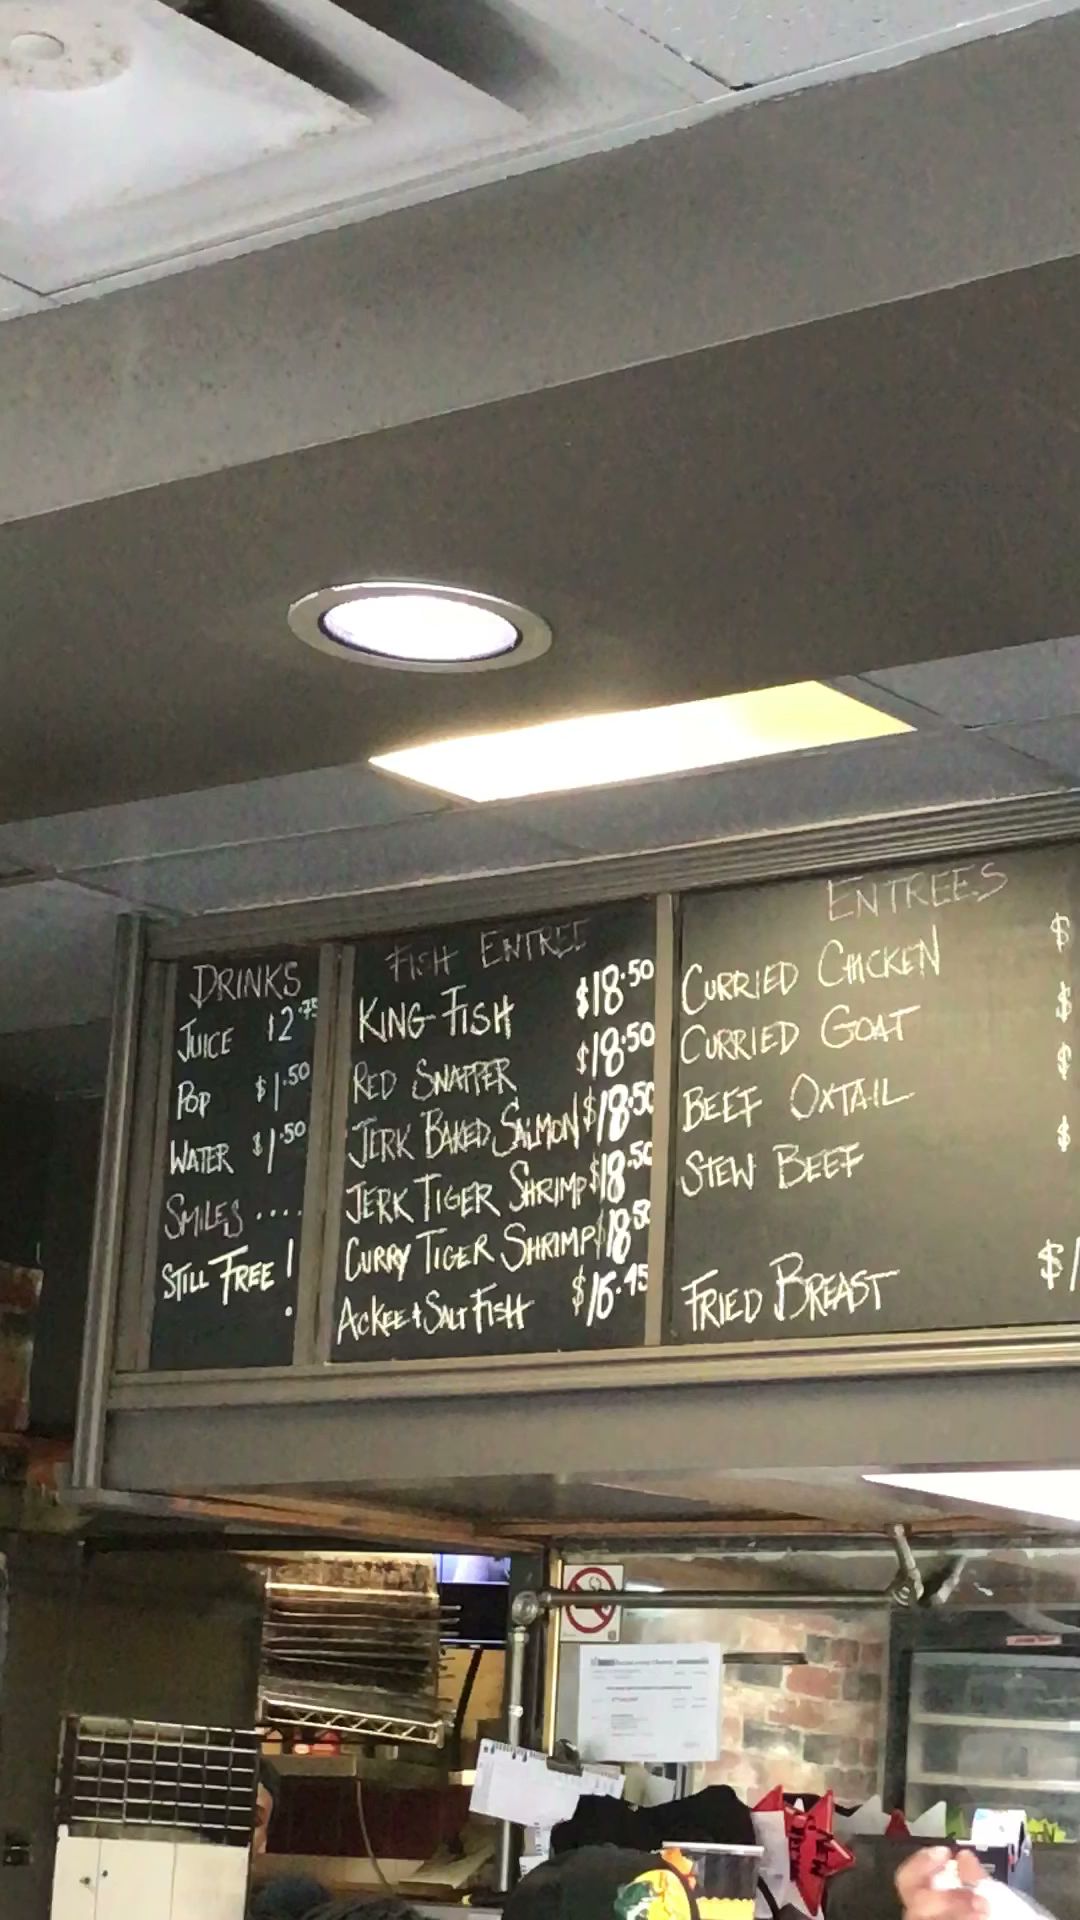 DRINKS
JUICE $2.75
POP $1.50
WATER $1.50
SMILES ....
STILL FREE !
FISH ENTREE
KING FISH $18.50
RED SNAPPER $18.50
JERK BAKED SALMON $18.50
JERK TIGER SHRIMP $18.50
CURRY TIGER SHRIMP $18.50
ACKEE & SALT FISH $16.45
ENTREES
CURRIED CHICKEN $
CURRIED GOAT $
BEEF OXTAIL $
STEW BEEF $
FRIED BREAST $1